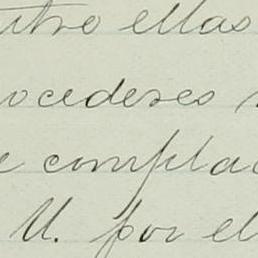 utro ellas
ocederes
e complac
U. por el